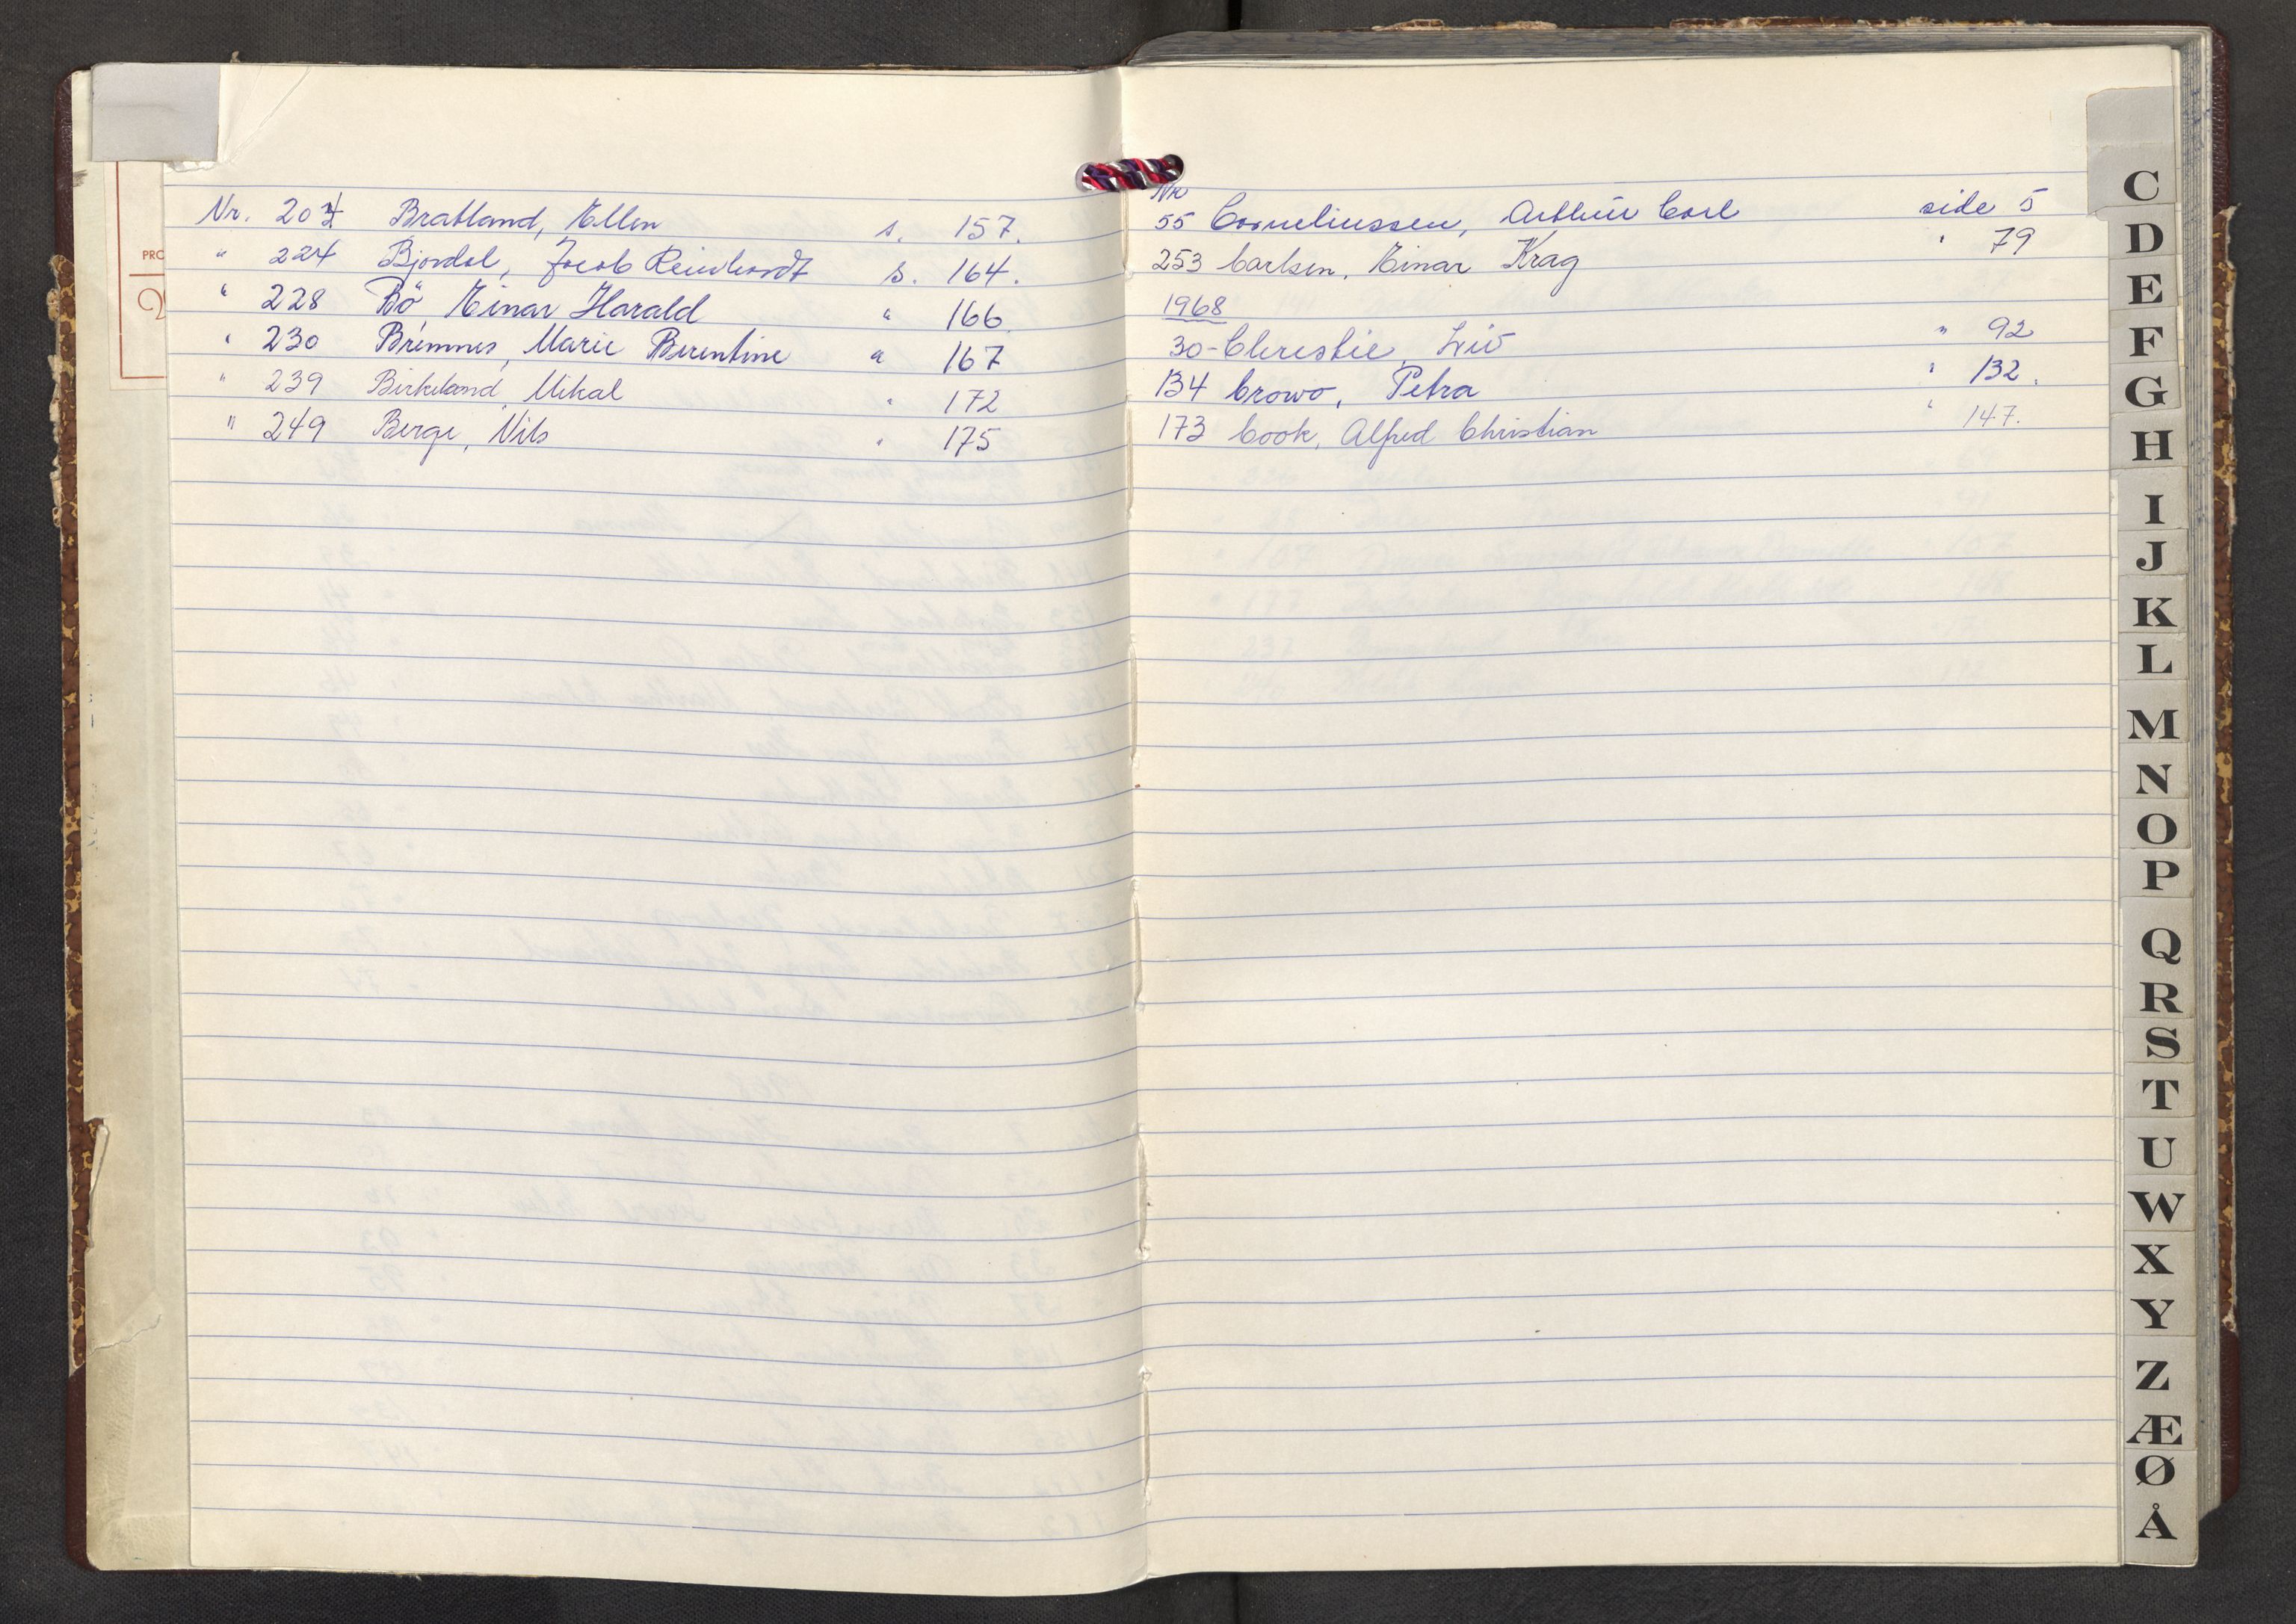 Nr. 204 Bratland, Ellen s. 157.
" 224 Bjordal, Jacob Reinhardt s. 164.
" 228 Bö, Einar Harald " 166.
" 230 Brimnes, Marie Berentine " 167
" 239 Birkeland, Mikal " 172
" 249 Berge, Nils " 175
PRO
Nr
55 Corneliussen, Arthur Carl side 5
253 Carlsen, Einar Krag " 79
1968
30 - Christie, Liv " 92
134 Crowo, Petra " 132.
173 Cook, Alfred Christian " 147.
C
D
E
F
G
H
I
J
K
L
M
N
O
P
Q
R
S
T
U
W
X
Y
Z
Æ
Ø
Å